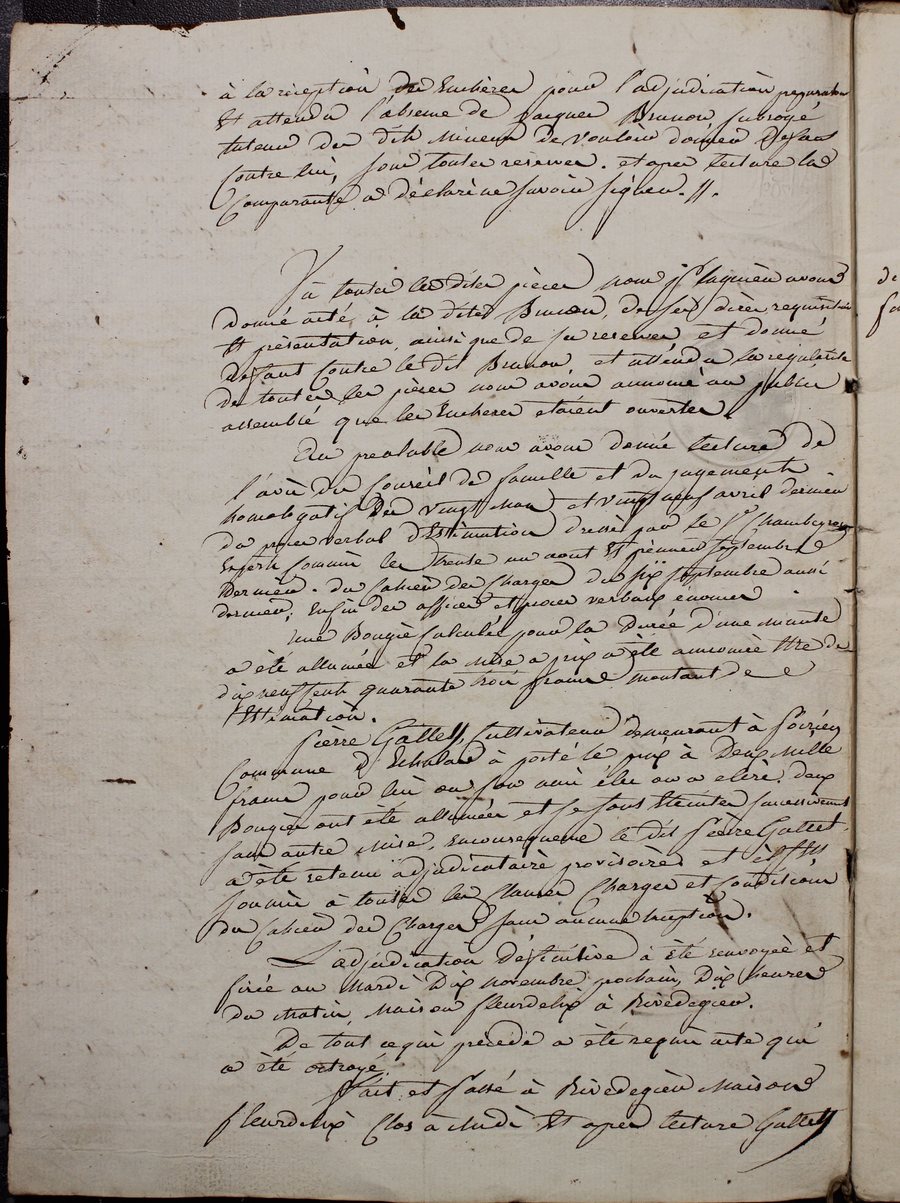 à la réception des Enchères pour l'adjudication preparatoire
Et attendu l'absence de Jacques Brunon subrogé
tuteur des dits mineurs de vouloir donner defaut
Contre lui, sous toutes reserves. et après lecture la
Comparante a déclaré ne savoir signer.
Vû toutes les dites pièces nous Notaire avons
donné acte à la dite Brunon, de ses dires, requisition
Et présentation, ainsi que de ses reserves et donné
defaut contre le dit Brunon et attendu la régularité
de toutes les pièces nous avons annoncé au public
assemblé que les Encheres etaient ouvertes.
Au prealable nous avons donné lecture de
l'avis du Conseil de famille et du jugement
homologatif des vingt mars et vingt neuf avril dernier
du procès verbal d'Estimation dressé par le Sr Chambeyron
Expert commis les trente un aout Et premier septembre
Dernier. du Cahier des Charges du six septembre aussi
dernier; Enfin des affiches et procès verbaux énoncés
Une Bougie calculée pour la Durée d'une minute
a été allumée et la mise a prix a été annoncée être de
dix neuf cent quarante trois francs montant de
l'Estimation.
Pierre Gallet, Cultivateur demeurant à
Commune d'Echalas à porté le prix à Deux mille
francs pour lui ou son ami élu ou a elire. deux
Bougies ont été allumées et se sont Eteintes successivement
sans autre mise, Enconsequence le dit Pierre Gallet
a été retenu adjudicataire provisoire et
soumis à toutes les Clauses Charges et Conditions
du Cahier des Charges sans aucune Exception.
L'adjudication définitive à été renvoyée et
fixée au Mardi Dix novembre prochain, Dix heures
du Matin, Maison fleurdelix à Rivedegier.
De tout cequi précède a été requis acte qui
a été octroyé.
Fait et Passé à Rivedegier Maison
fleurdelix Clos à Midi Et après lecture Gallet